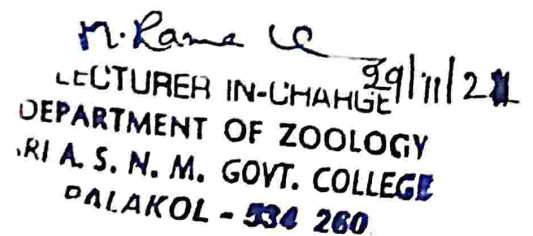 M. Rama
29/11/21
LECTURER IN-CHARGE
DEPARTMENT OF ZOOLOGY
SRI A. S. N. M. GOVT. COLLEGE
PALAKOL - 534 260